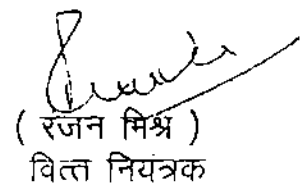 ( रंजन मिश्र )
वित्त नियंत्रक